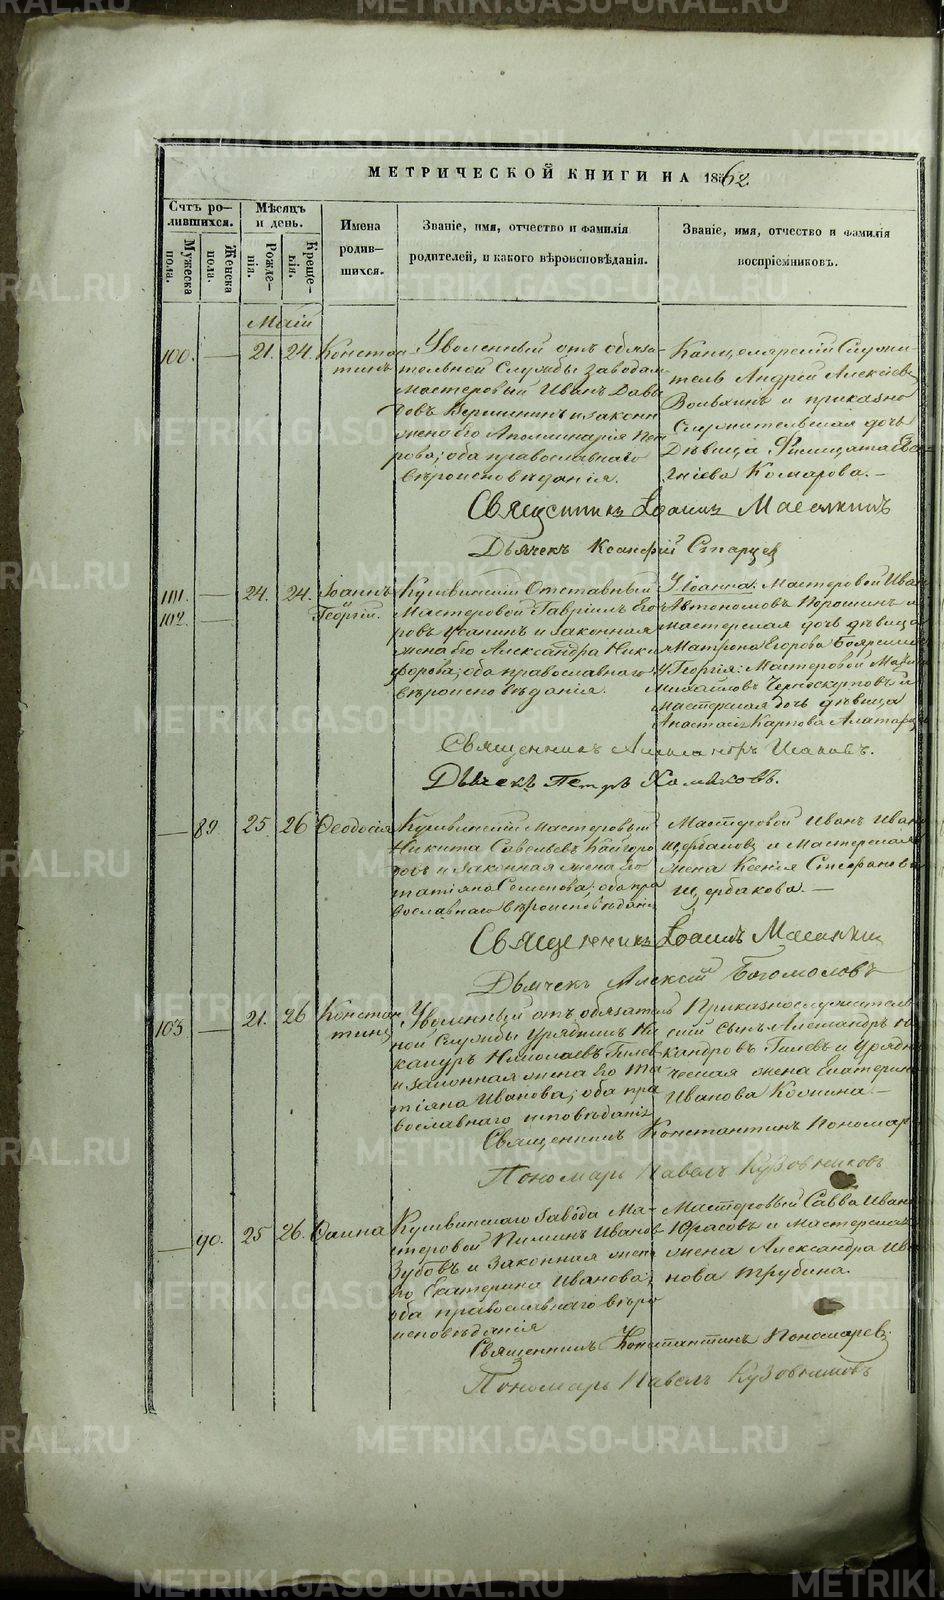 МЕТРИЧЕСКОЙ КНИГИ НА 1862
Счтъ ро-
лившихся.
Мѣсяцъ
и день.
Мужеска
пола.
Женска
пола.
Рожде-
нія.
Креще-
нія.
Имена
родив-
шихся.
Званіе, имя, отчество и фамилія
родителей, и какого вѣроисповѣданія.
Званіе, имя, отчество и фамилія
воспріемниковъ.
Маій
100. — 21. 24. Констан
тинъ
Уволенный отъ обяза
тельной Службы заводам
мастеровый Иванъ Давы
довъ Вершининъ и законн
жена его Аполлинарія Пет
рова; оба православнаго
вѣроисповѣданія.
Канцелярскій Служи
тель Андрей Алексѣевъ
и приказно
служительская дочь
Дѣвица Филицата Ев
гніева Комарова. —
Священникъ Іоаннъ Масалкинъ
Дьячекъ Ксанфій Старцев
101. — 24. 24. Іоаннъ
102. — Георгій.
Кушвинскій Отставный
Мастеровой Гавріилъ Его
ровъ Усанинъ и законная
жена его Александра Ники
форова; оба православнаго
вѣроисповѣданія.
У Іоанна: Мастеровой Иван
Автономовъ Порошинъ и
мастерская дочь дѣвица
Матрона Егорова
У Георгія: Мастеровой
Михайловъ Черноскутовъ и
мастерская дочь дѣвица
Анастасія Карпова
Священникъ Александръ Исаковъ.
Дьячекъ Петръ Хомяковъ.
— 89 25. 26 Ѳеодосія
Кушвинскій мастеровый
Никита Савельевъ Кайгоро
довъ и законная жена его
Татіяна Семенова; оба пра
вославнаго вѣроисповѣданія
Мастеровой Иванъ Иван
Щербаковъ и Мастерская
жена Ксенія Стефанов
Щербакова. —
Священникъ Іоаннъ Масалкин
Дьячекъ Алексій Богомоловъ
103 — 21. 26 Констан
тинъ
Уволенный отъ обязатель
ной Службы Урядникъ Ни
кануръ Николаевъ Гилев
и законная жена его Та
тіяна Иванова; оба пра
вославнаго исповѣданія
Приказнослужитель
скій сынъ Александръ
кандровъ Гилевъ и Урядни
ческая жена Екатерина
Иванова —
Священникъ Константинъ Пономар
Пономарь Павелъ Кузовниковъ
— 90. 25 26. Ѳаина
Кушвинскаго завода Ма
стеровой Пименъ Иванов
Зубовъ и законная жена
его Екатерина Иванова;
оба православнаго вѣро
исповѣданія
Мастеровый Савва Иван
Юрасовъ и Мастерская
жена Александра Ива
нова Трубина.
Священникъ Константинъ Пономаревъ
Пономарь Павелъ Кузовниковъ
METRIKI.GASO-URAL.RU